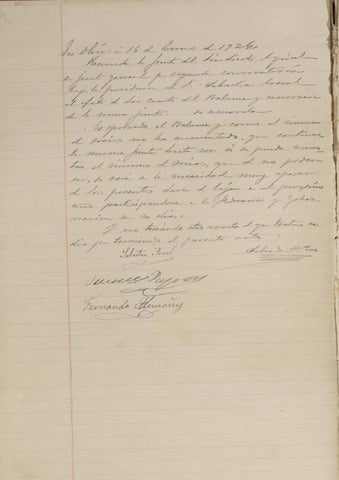 En Olius à 16 de Enero de 1926
Reunida la Junta del Sindicato Agricol
en junta general pr segunda convocatoria
bajo la presidencia de D. Sebastian
al fin de dar cuenta del Balance y renovacion
de la nueva junta. Se acuerda
Es aprovado el Balance y como el número
de socios no ha aumentado, que continue
la misma junta hasta ver si se puede aumen-
tar el número de socios, que de no poder
ser, se verá en la necesidad muy apesar
de los presentes darse de baja en el proximo
año participandose a la Federacion y Gober-
nacion en su dia.
Y no habiendo otro asunto de que tratar se
dió por terminado el presente acta.
Fernando Alemany